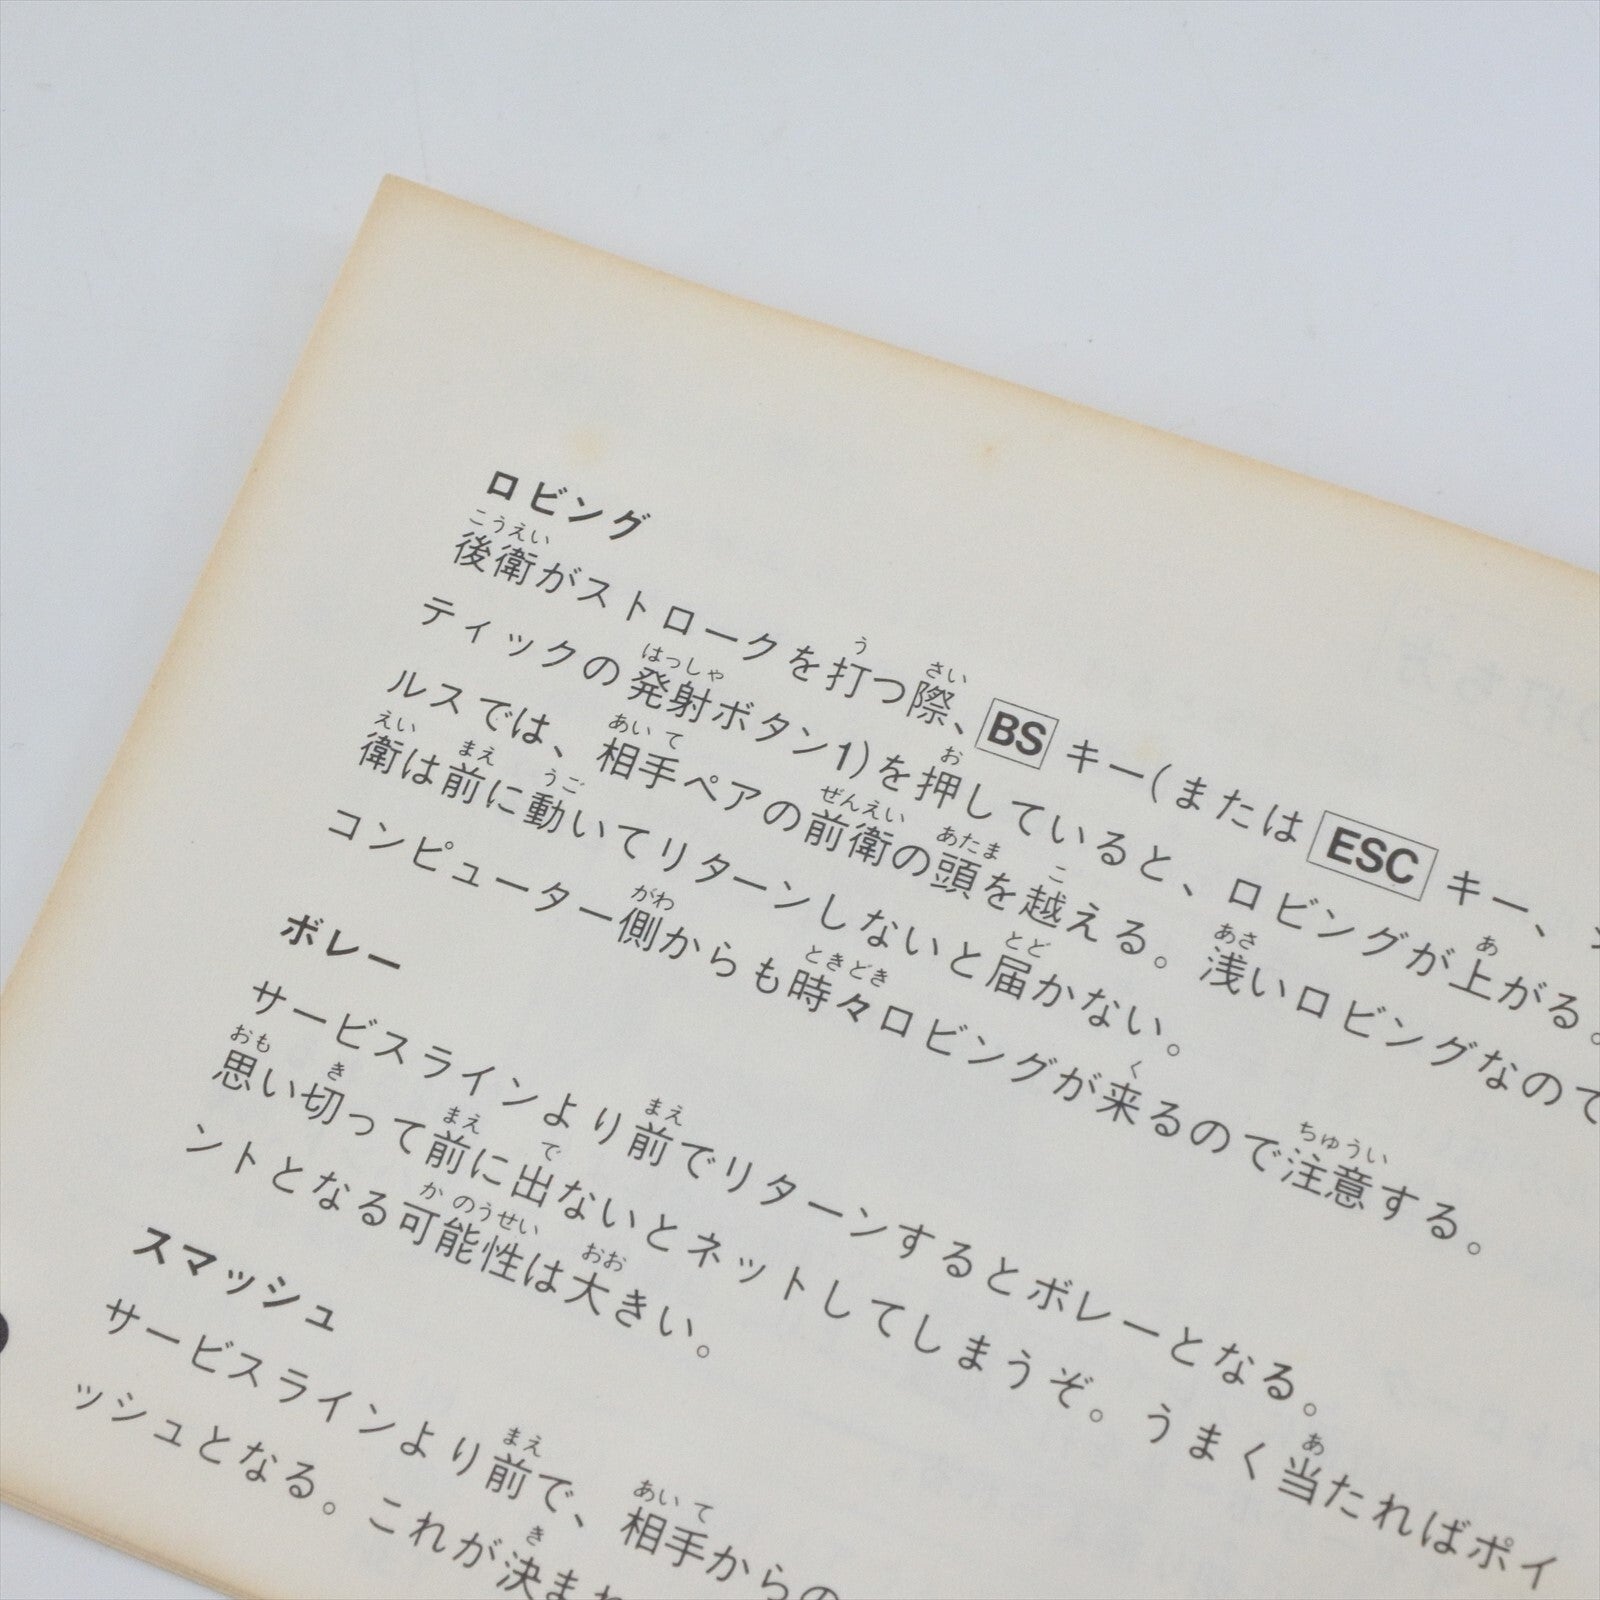 ロビング
後衛がストロークを打つ際、BSキー(またはESCキー、ジ
ティックの発射ボタン1)を押していると、ロビングが上がる。
ルスでは、相手ペアの前衛の頭を越える。浅いロビングなので
衛は前に動いてリターンしないと届かない。
コンピューター側からも時々ロビングが来るので注意する。
ボレー
サービスラインより前でリターンするとボレーとなる。
思い切って前に出ないとネットしてしまうぞ。うまく当たればポイ
ントとなる可能性は大きい。
スマッシュ
サービスラインより前で、相手からの
ッシュとなる。これが決まれ